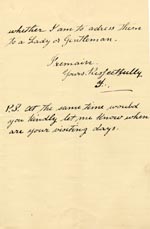 whether I am to adress them
to a Lady or Gentleman.
I remain.
Yours Respectfully
P.S. At the same time would
you kindly let me know when
are your visiting days.